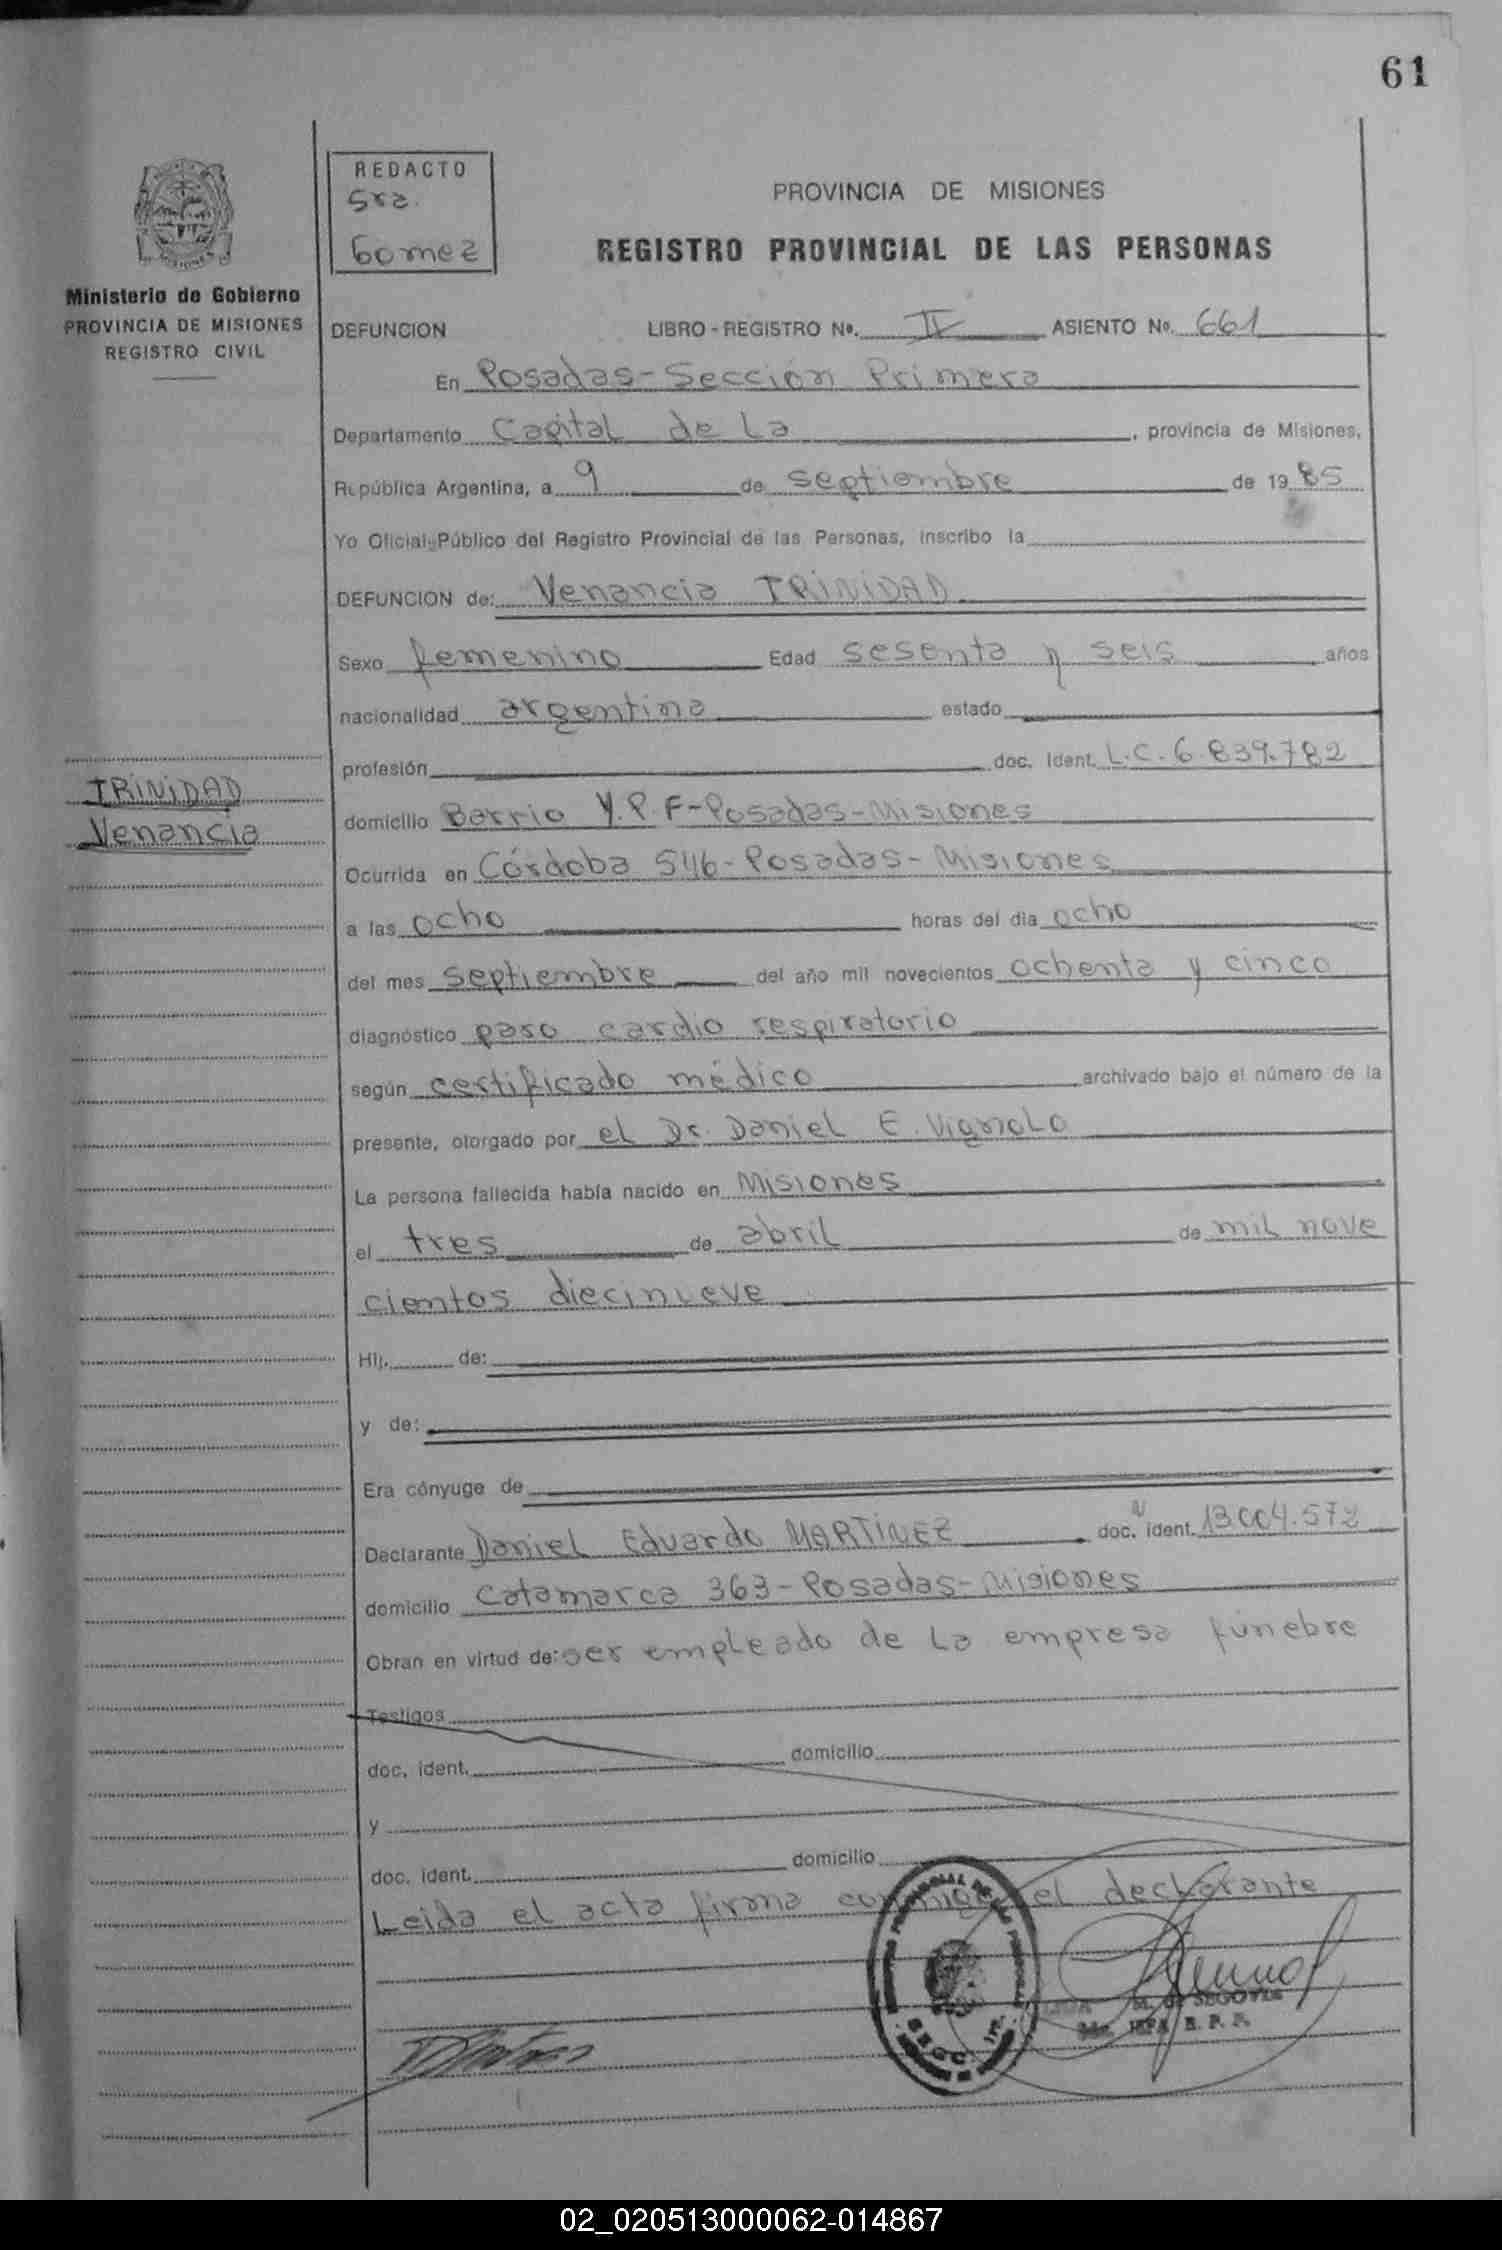 61
REDACTO
Sra.
Gomez
PROVINCIA DE MISIONES
REGISTRO PROVINCIAL DE LAS PERSONAS
Ministerio de Gobierno
PROVINCIA DE MISIONES
REGISTRO CIVIL
DEFUNCION LIBRO - REGISTRO Nº. IV ASIENTO Nº. 661
En Posadas-Sección Primera
Departamento Capital de La, provincia de Misiones,
República Argentina, a 9 de septiembre de 1985
Yo Oficial Público del Registro Provincial de las Personas, inscribo la
DEFUNCION de: Venancia TRINIDAD
Sexo femenino Edad sesenta y seis años
nacionalidad argentina estado
profesión doc. Ident. L.C. 6.839.782
TRINIDAD
Venancia
domicilio Barrio Y.P.F-Posadas-Misiones
Ocurrida en Córdoba 546-Posadas-Misiones
a las ocho horas del día ocho
del mes septiembre del año mil novecientos ochenta y cinco
diagnóstico paso cardio respiratorio
según certificado médico archivado bajo el número de la
presente, otorgado por el Dr. Daniel E. Vignolo
La persona fallecida había nacido en Misiones
el tres de abril de mil nove
cientos diecinueve
Hij. de:
y de:
Era cónyuge de
Declarante Daniel Eduardo MARTINEZ doc. ident. 13.004.572
domicilio Catamarca 363-Posadas-Misiones
Obran en virtud de: ser empleado de la empresa fúnebre
Testigos
doc. ident. domicilio
y
doc. ident. domicilio
Leida el acta firma conmigo el declarante
M. de SEGOVIA
R. P. P.
02_020513000062-014867